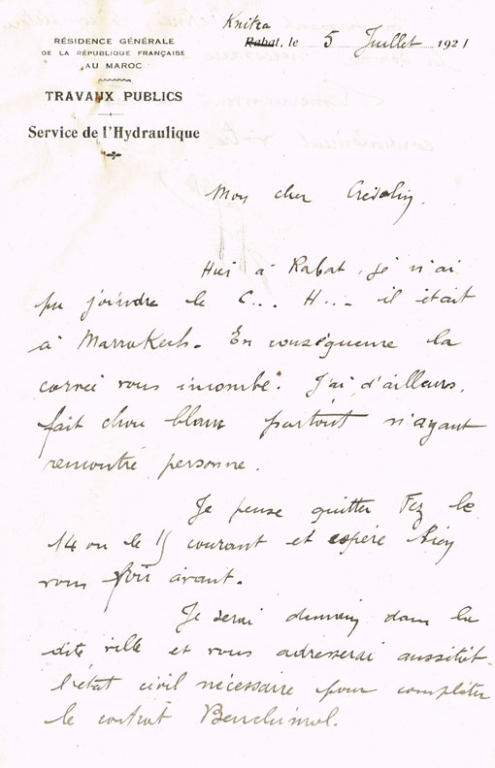 RÉSIDENCE GÉNÉRALE
DE LA RÉPUBLIQUE FRANÇAISE
AU MAROC
TRAVAUX PUBLICS
Service de l'Hydraulique
Knitra
Rabat, le 5 Juillet 1921
Mon cher
Hier à Rabat, je n'ai
pu joindre le C... H... il était
à Marrakech. En conséquence la
corvée vous incombe. J'ai d'ailleurs,
fait chou blanc partout n'ayant
rencontré personne.
Je pense quitter Fez le
14 ou le 15 courant et espère bien
vous voir avant.
Je serai demain dans la
dite ville et vous adresserai aussitôt
l'état civil nécessaire pour compléter
le contrat Benchimol.